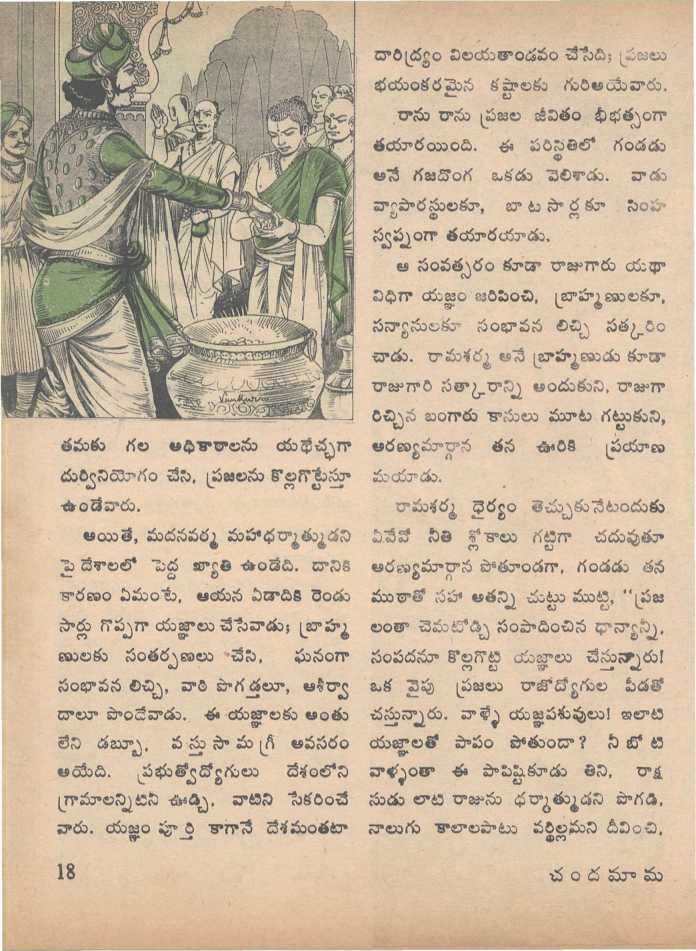 తమకు గల అధికారాలను యథేచ్ఛగా
దుర్వినియోగం చేసి, ప్రజలను కొల్లగొట్టేస్తూ
ఉండేవారు.
అయితే, మదనవర్మ మహాధర్మాత్ముడని
పై దేశాలలో పెద్ద ఖ్యాతి ఉండేది. దానికి
కారణం ఏమంటే, ఆయన ఏడాదికి రెండు
సార్లు గొప్పగా యజ్ఞాలు చేసేవాడు; బ్రాహ్మ
ణులకు సంతర్పణలు చేసి, ఘనంగా
సంభావన లిచ్చి, వారి పొగడ్తలూ, ఆశీర్వా
దాలూ పొందేవాడు. ఈ యజ్ఞాలకు అంతు
లేని డబ్బూ, వస్తుసామగ్రీ అవసరం
అయేది. ప్రభుత్వోద్యోగులు దేశంలోని
గ్రామాలన్నిటినీ ఊడ్చి, వాటిని సేకరించే
వారు. యజ్ఞం పూర్తి కాగానే దేశమంతటా
దారిద్ర్యం విలయతాండవం చేసేది; ప్రజలు
భయంకరమైన కష్టాలకు గురిఅయేవారు.
రాను రాను ప్రజల జీవితం భీభత్సంగా
తయారయింది. ఈ పరిస్థితిలో గండడు
అనే గజదొంగ ఒకడు వెలిశాడు. వాడు
వ్యాపారస్థులకూ, బాటసార్లకూ సింహ
స్వప్నంగా తయారయాడు.
ఆ సంవత్సరం కూడా రాజుగారు యథా
విధిగా యజ్ఞం జరిపించి, బ్రాహ్మణులకూ,
సన్యాసులకూ సంభావన లిచ్చి సత్కరిం
చాడు. రామశర్మ అనే బ్రాహ్మణుడు కూడా
రాజుగారి సత్కారాన్ని అందుకుని, రాజుగా
రిచ్చిన బంగారు కాసులు మూట గట్టుకుని,
అరణ్యమార్గాన తన ఊరికి ప్రయాణ
మయాడు.
రామశర్మ ధైర్యం తెచ్చుకునేటందుకు
ఏవేవో నీతి శ్లోకాలు గట్టిగా చదువుతూ
అరణ్యమార్గాన పోతూండగా, గండడు తన
ముఠాతో సహా అతన్ని చుట్టు ముట్టి, "ప్రజ
లంతా చెమటోడ్చి సంపాదించిన ధాన్యాన్నీ,
సంపదనూ కొల్లగొట్టి యజ్ఞాలు చేస్తున్నారు!
ఒక వైపు ప్రజలు రాజోద్యోగుల పీడతో
చస్తున్నారు. వాళ్ళే యజ్ఞపశువులు! ఇలాటి
యజ్ఞాలతో పాపం పోతుందా? నీబోటి
వాళ్ళంతా ఈ పాపిష్టికూడు తిని, రాక్ష
సుడు లాటి రాజును ధర్మాత్ముడని పొగడి,
నాలుగు కాలాలపాటు వర్థిల్లమని దీవించి,
18
చందమామ